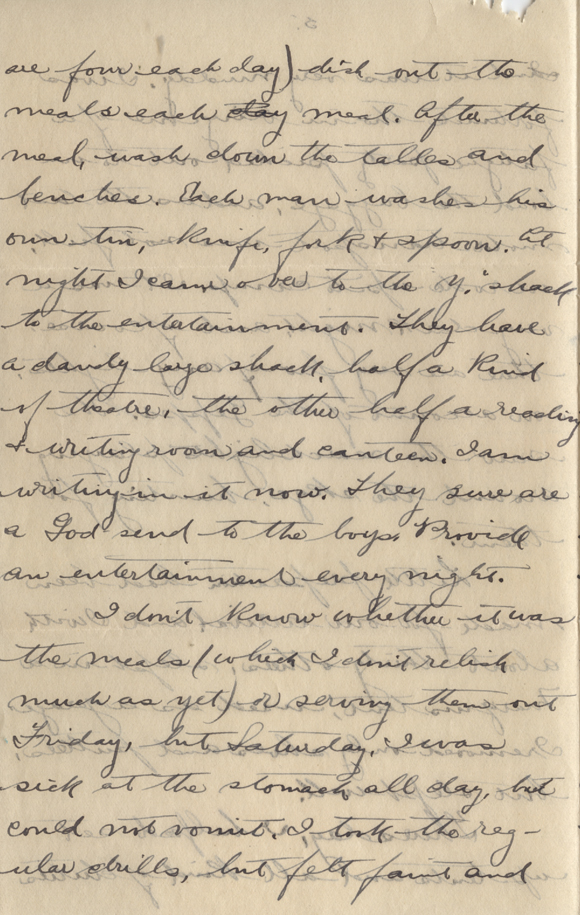 are four each day) dish out the
meals each day meal. After the
meal, wash down the tables and
benches. Each man washes his
own tin, knife, fork & spoon. At
night I came over to the "Y." shack
to the entertainment. They have
a dandy large shack, half a kind
of theatre, the other half a reading
& writing room and canteen. I am
writing in it now. They sure are
a God send to the boys. Provide
an entertainment every night.
I don't know whether it was
the meals (which I don't relish
much as yet) or serving them out
Friday, but Saturday, I was
sick at the stomach all day, but
could not vomit. I took the reg-
ular drills, but felt faint and